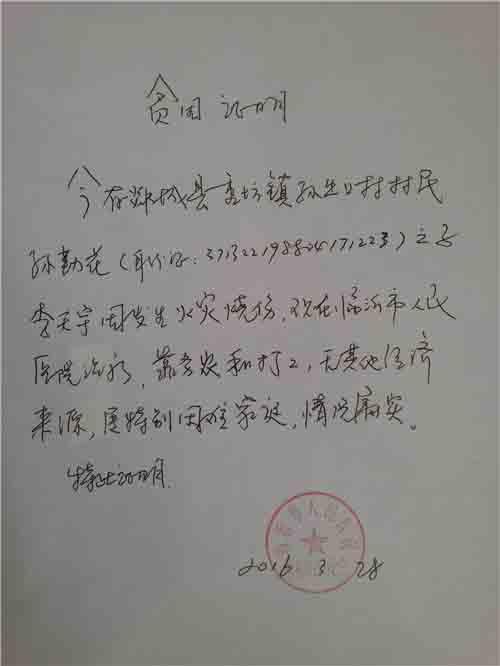 贫困证明
今有郯城县李坊镇孙出口村村民
孙勤花(身份证:371322198824171223)之子
李天宇因发生火灾烧伤,现在临沂市人民
医院治疗,靠务农和打工,无其他经济
来源,属特别困难家庭,情况属实。
特此证明
2016.3.28